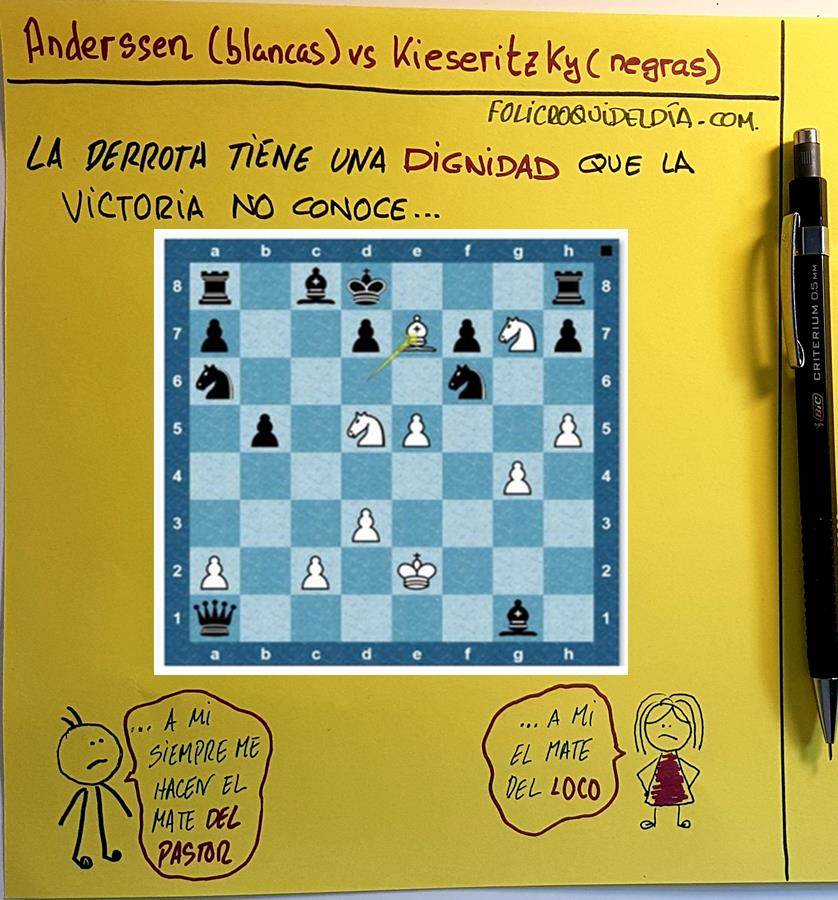 Anderssen (blancas) vs Kieseritzky (negras)
FOLICROQUIDELDÍA.COM.
LA DERROTA TIENE UNA DIGNIDAD QUE LA
VICTORIA NO CONOCE...
a b c d e f g h
8 8
7 7
6 6
5 5
4 4
3 3
2 2
1 1
a b c d e f g h
... A MI
SIEMPRE ME
HACEN EL
MATE DEL
PASTOR
... A MI
EL MATE
DEL LOCO
CRITERIUM 0.5 MM
BIC